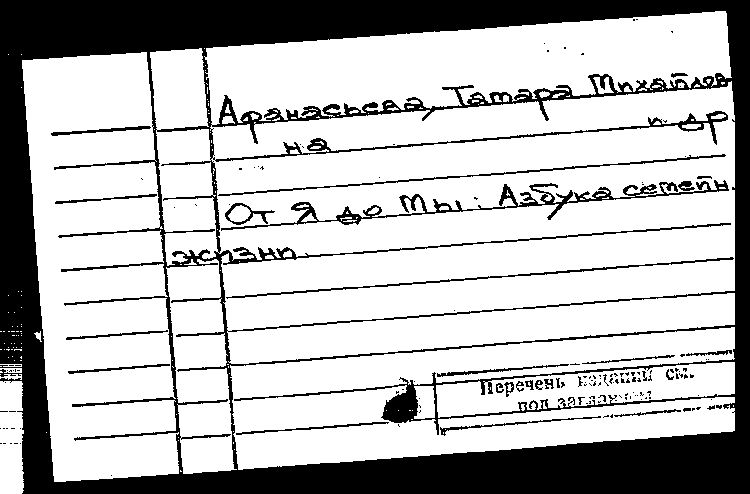 Афанасьева, Тамара Михайлов-
на и др.
От Я до Мы: Азбука семейн.
жизни.
Перечень изданий см.
под заглавием